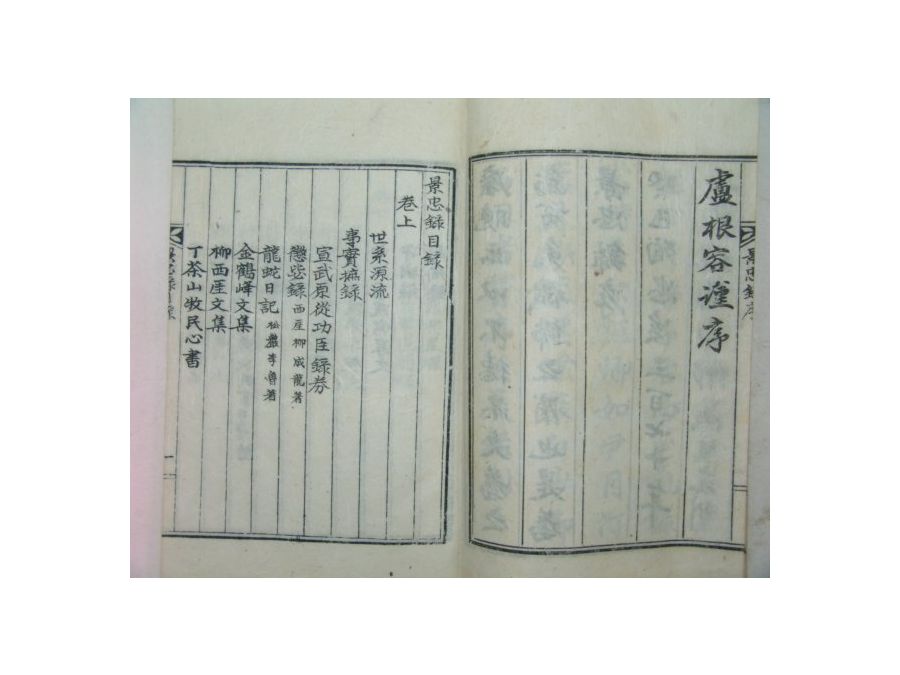 盧根容謹序
景忠錄序
景忠錄目錄
卷上
世系源流
事實摭錄
宣武原從功臣錄券
懲毖錄 西厓柳成龍著
龍蛇日記 松巖李魯著
金鶴峰文集
柳西厓文集
丁茶山牧民心書
景忠錄目錄
一